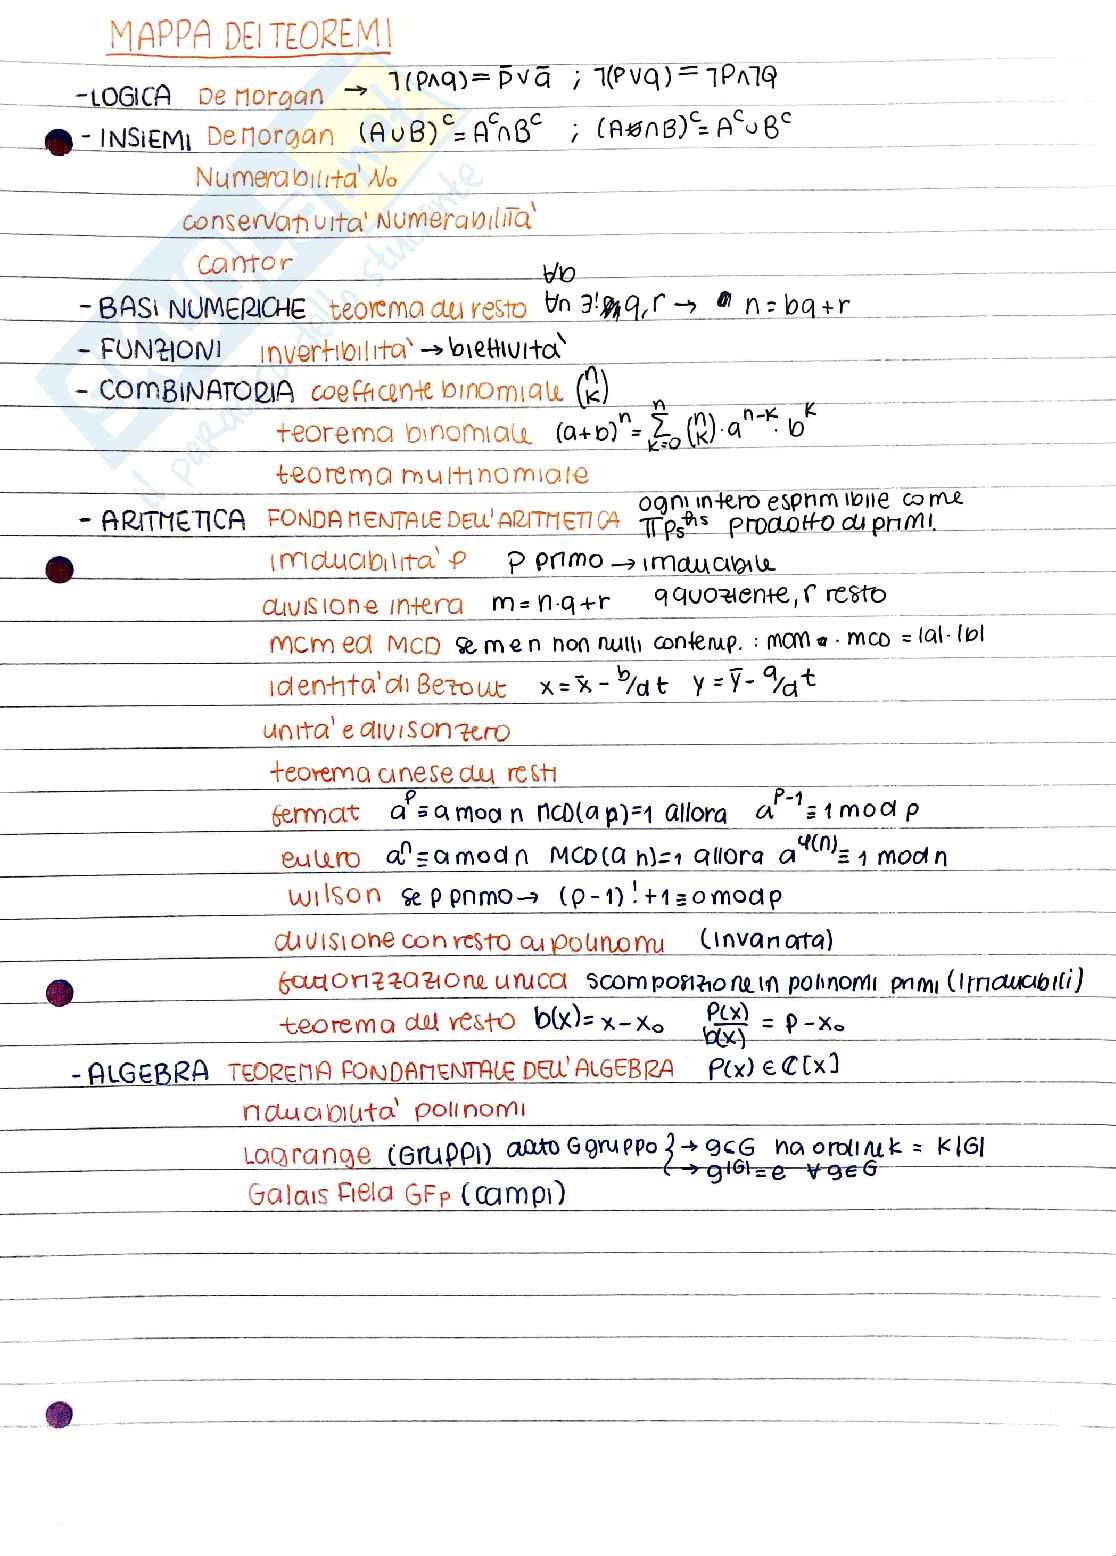 MAPPA DEI TEOREMI
-LOGICA De Morgan → ¬(P∧q) = p̄ ∨ q̄ ; ¬(P∨q) = ¬P∧¬Q
- INSIEMI De Morgan (A∪B)ᶜ = Aᶜ∩Bᶜ ; (A∩B)ᶜ = Aᶜ∪Bᶜ
Numerabilita' No
conservativita' Numerabilita'
Cantor
∀b
- BASI NUMERICHE teorema del resto ∀n ∃! q, r → n = bq + r
- FUNZIONI invertibilita' → biettivita'
- COMBINATORIA coefficente binomiale (n k)
teorema binomiale (a+b)ⁿ = Σ k=0 n (n k) · aⁿ⁻ᵏ · bᵏ
teorema multinomiale
ogni intero esprimibile come
- ARITMETICA FONDAMENTALE DELL'ARITMETICA prodotto di primi.
irriducibilita' p p primo → irriducibile
divisione intera m = n·q + r q quoziente, r resto
mcm ed MCD se m e n non nulli contemp. : mcm · MCD = |a|·|b|
identita' di Bezout x = x̄ - b/d t y = ȳ - a/d t
unita' e divisori zero
teorema cinese dei resti
fermat aᵖ ≡ a mod n MCD(a p)=1 allora aᵖ⁻¹ ≡ 1 mod p
eulero aⁿ ≡ a mod n MCD(a n)=1 allora a^φ(n) ≡ 1 mod n
wilson se p primo → (p-1)! + 1 ≡ 0 mod p
divisione con resto di polinomi (invariata)
fattorizzazione unica scomposizione in polinomi primi (irriducibili)
teorema del resto b(x) = x - x₀ P(x)/b(x) = P - x₀
- ALGEBRA TEOREMA FONDAMENTALE DELL'ALGEBRA P(x) ∈ ℂ[x]
riducibilita' polinomi
Lagrange (GRUPPI) dato G gruppo } → g∈G ha ordine k = K|G|
→ g|G| = e ∀g∈G
Galois Field GFp (campi)